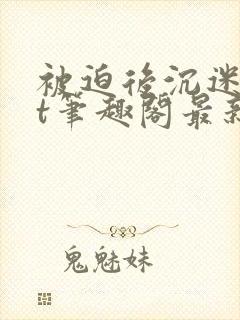 被迫后沉迷
t筆趣阁最新
鬼魅妹